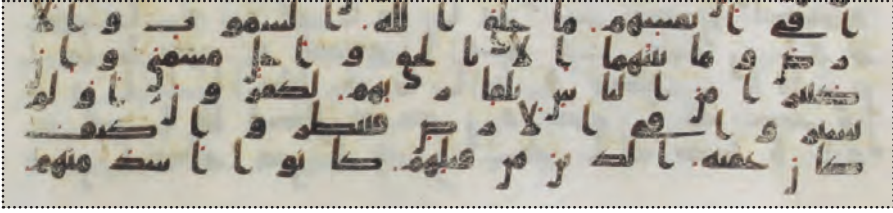 ا في انفسهم ما خلق الله السموت والا
رض وما بينهما الا بالحق واجل مسمى وان
كثيرا من الناس بلقاى ربهم لكفرون اولم
يسيروا في الارض فينظروا كيف
كان عقبة الذين من قبلهم كانوا اشد منهم